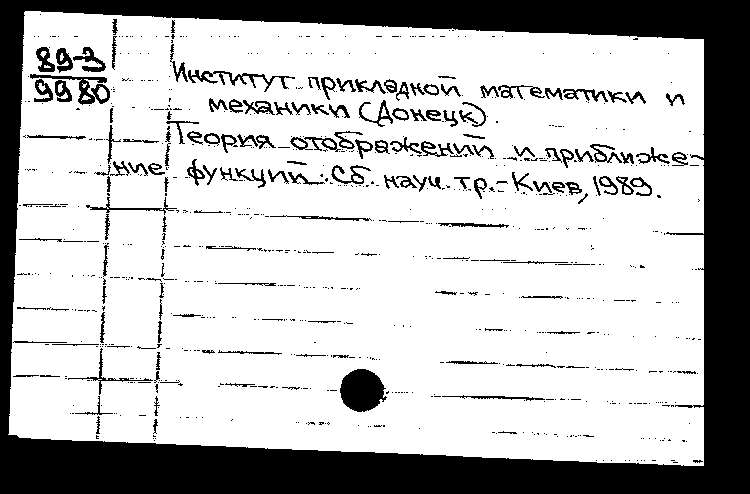 89-3
9980
Институт прикладной математики и
механики (Донецк).
Теория отображений и приближе-
ние функций: Сб. науч. тр.-Киев, 1989.